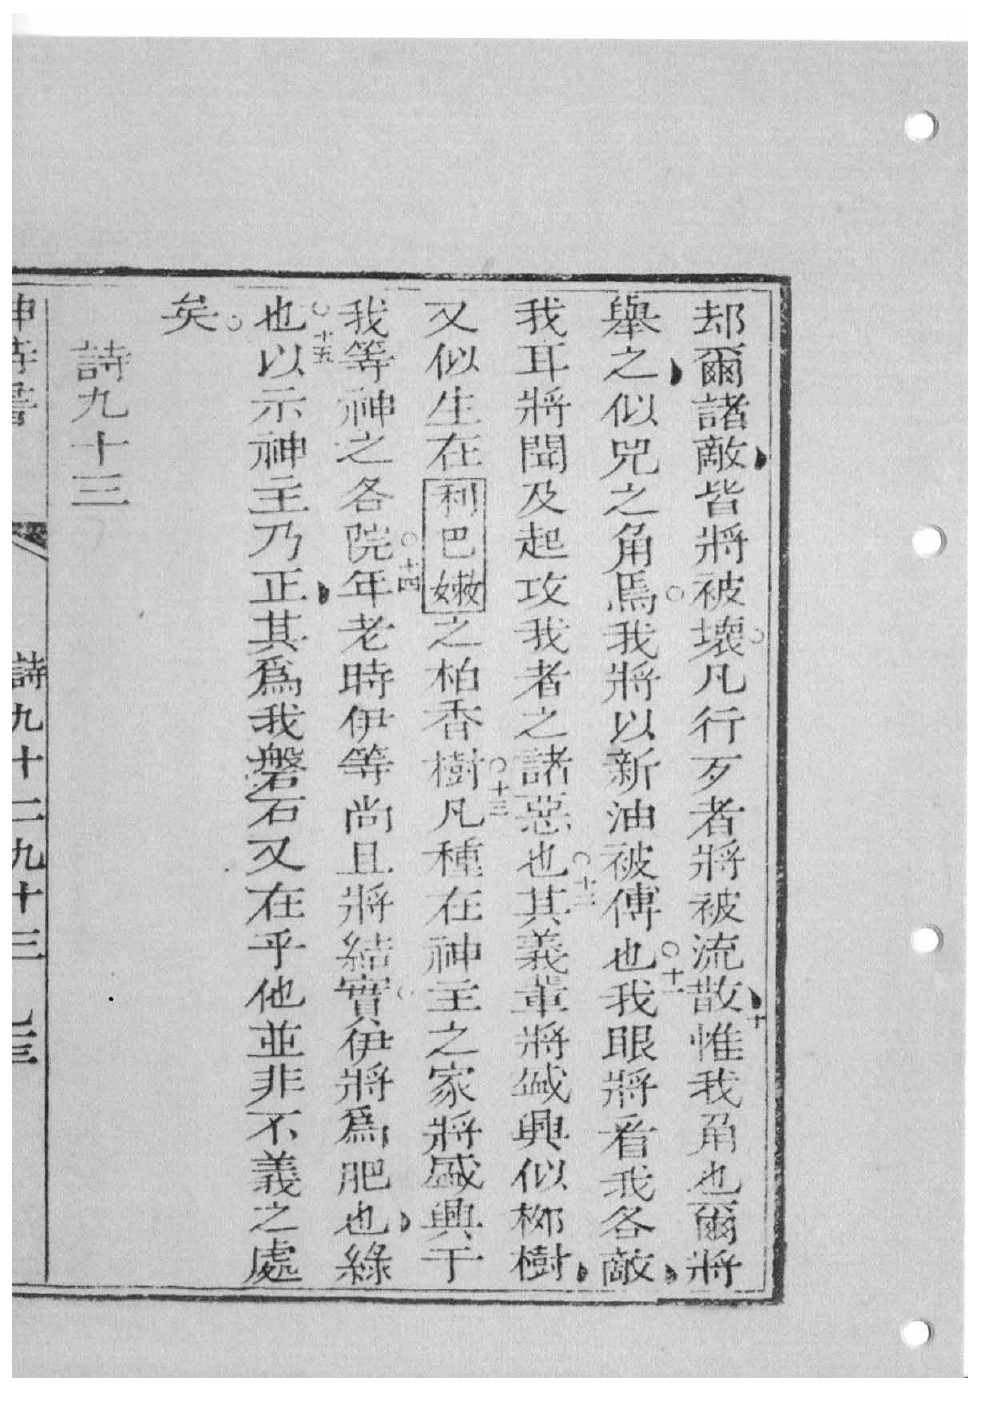 却爾諸敵皆將被壞凡行歹者將被流散十惟我角也爾將
舉之似兕之角焉我將以新油被傅也十一我眼將看我各敵
我耳將聞及起攻我者之諸惡也十二其義輩將盛興似椰樹
又似生在利巴嫩之柏香樹十三凡種在神主之家將盛興于
我等神之各院十四年老時伊等尚且將結實伊將爲肥也綠
也十五以示神主乃正其爲我磐石又在乎他並非不義之處
矣
詩九十三
神詩書 詩九十二九十三